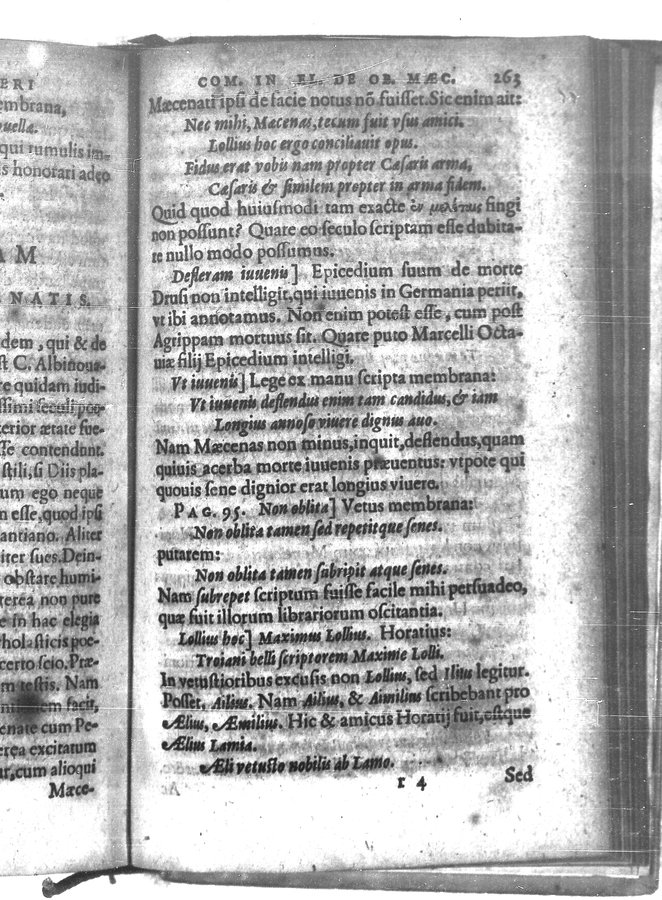 ERI
embrana,
uella.
qui tumulis im-
is honorari adeo
AM
NATIS.
dem, qui & de
st C. Albinoua-
re quidam iudi-
ssimi seculi poe-
terior ætate fue-
sse contendunt.
stili, si Diis pla-
um ego neque
n esse, quod ipsi
antiano. Aliter
iter sues. Dein-
obstare humi-
terea non pure
e in hac elegia
holasticis poe-
certo scio. Præ-
m testis. Nam
facit,
enate cum Pe-
erea excitatum
ur, cum alioqui
Mæce-
COM. IN EL. DE OB. MÆC. 263
Mæcenati ipsi de facie notus nō fuisset. Sic enim ait:
Nec mihi, Mæcenas, tecum fuit vsus amici,
Lollius hoc ergo conciliauit opus.
Fidus erat vobis nam propter Cæsaris arma,
Cæsaris & similem propter in arma fidem.
Quid quod huiusmodi tam exacte ἐν μελέταις fingi
non possunt? Quare eo seculo scriptam esse dubita-
re nullo modo possumus.
Defleram iuuenis] Epicedium suum de morte
Drusi non intelligit, qui iuuenis in Germania periit,
vt ibi annotamus. Non enim potest esse, cum post
Agrippam mortuus sit. Quare puto Marcelli Octa-
uiæ filij Epicedium intelligi.
Vt iuuenis] Lege ex manu scripta membrana:
Vt iuuenis deflendus enim tam candidus, & iam
Longius annoso viuere dignus auo.
Nam Mæcenas non minus, inquit, deflendus, quam
quiuis acerba morte iuuenis præuentus: vtpote qui
quouis sene dignior erat longius viuere.
PAG. 95. Non oblita] Vetus membrana:
Non oblita tamen sed repetitque senes.
putarem:
Non oblita tamen subripit atque senes.
Nam subrepet scriptum fuisse facile mihi persuadeo,
quæ fuit illorum librariorum oscitantia.
Lollius hoc] Maximus Lollius. Horatius:
Troiani belli scriptorem Maxime Lolli.
In vetustioribus excusis non Lollius, sed Ilius legitur.
Posset, Ailius. Nam Ailius, & Aimilius scribebant pro
Ælius, Æmilius. Hic & amicus Horatij fuit, estque
Ælius Lamia.
Æli vetusto nobilis ab Lamo.
r 4
Sed